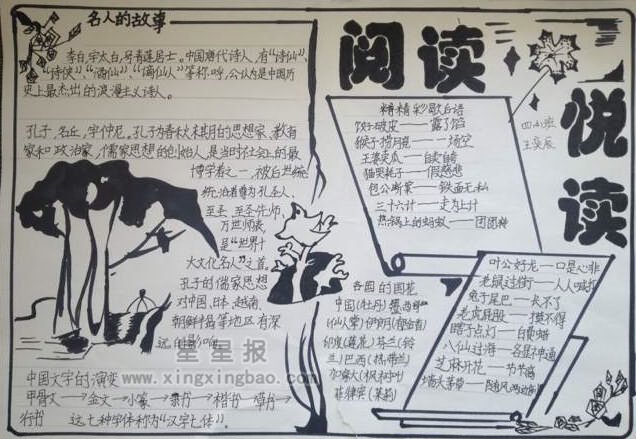 名人的故事
李白,字太白,号青莲居士。中国唐代诗人,有“诗仙”、
“诗侠”、“酒仙”、“谪仙人”等称呼,公认为是中国历
史上最杰出的浪漫主义诗人。
孔子,名丘,字仲尼。孔子为春秋末期的思想家、教育
家和政治家,儒家思想的创始人,是当时社会上的最
博学者之一,被后世统
统治者尊为孔圣人、
至圣、至圣先师、
万世师表,
是“世界十
大文化名人”之首。
孔子的儒家思想
对中国、日本、越南、
朝鲜半岛等地区有深
远的影响。
中国文字的演变
甲骨文→金文→小篆→隶书→楷书→草书→
行书 这七种字体称为“汉字七体”。
星星报
www.xingxingbao.com
阅读
悦读
四小班
精精彩歇后语
饺子破皮——露了馅
猴子捞月亮——一场空
王婆卖瓜——自卖自夸
猫哭耗子——假慈悲
包公断案——铁面无私
三十六计——走为上计
热锅上的蚂蚁——团团转
各国的国花
中国(牡丹)
(仙人掌)伊朗(郁金香)
印度(莲花)芬兰(铃
兰)巴西
加拿大(枫树叶)
菲律宾(茉莉)
叶公好龙——口是心非
老鼠过街——人人喊打
兔子尾巴——长不了
老虎屁股——摸不得
瞎子点灯——白费蜡
八仙过海——各显神通
芝麻开花——节节高
墙头茅草——随风两边倒